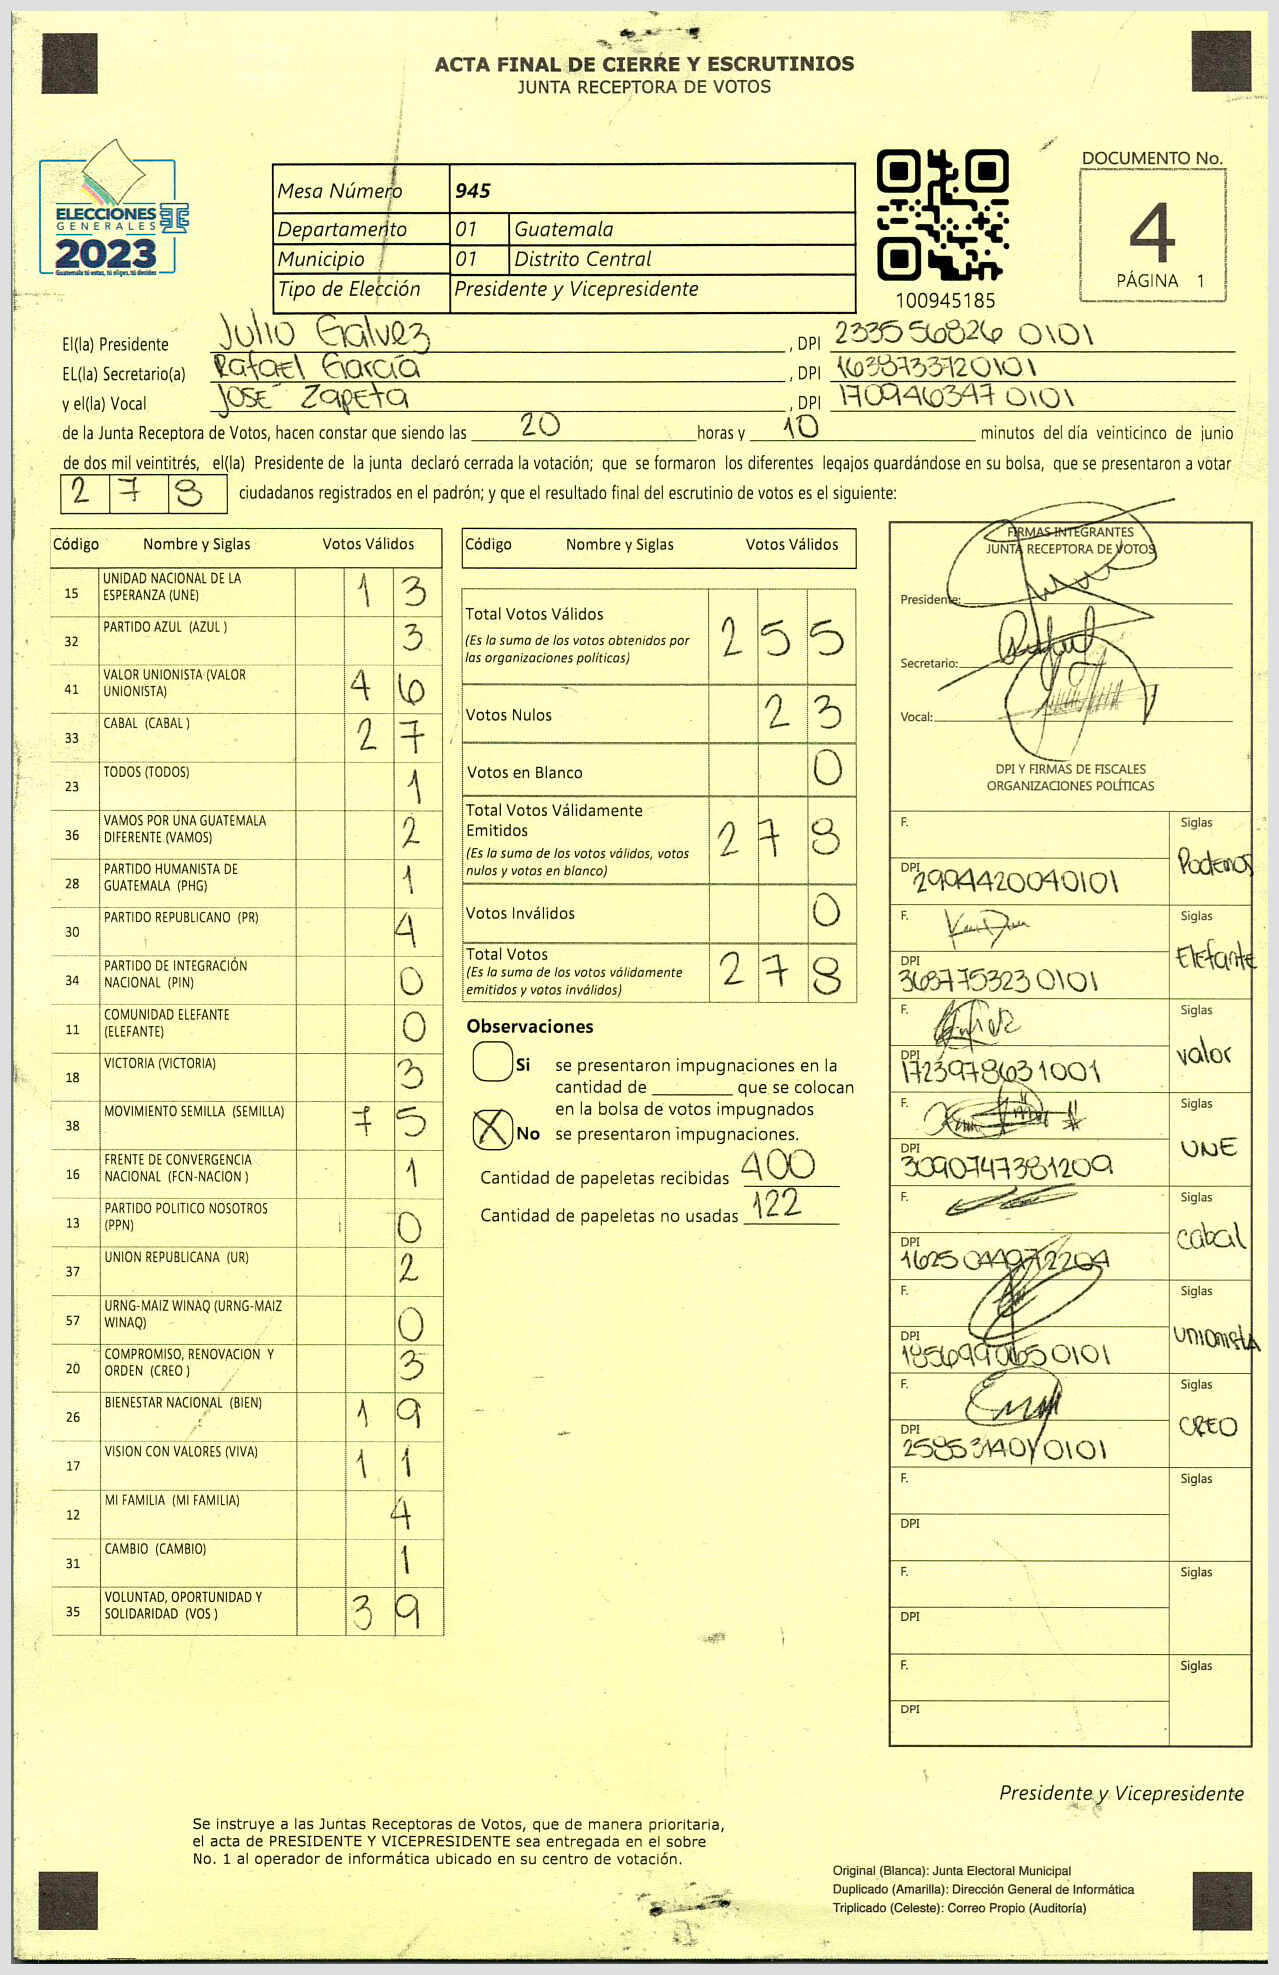 ACTA FINAL DE CIERRE Y ESCRUTINIOS
JUNTA RECEPTORA DE VOTOS
ELECCIONES
GENERALES
2023
Guatemala tú estas, tú eliges, tú decides
Mesa Número 945
Departamento 01 Guatemala
Municipio 01 Distrito Central
Tipo de Elección Presidente y Vicepresidente
100945185
DOCUMENTO No.
4
PÁGINA 1
El(la) Presidente Julio Galvez , DPI 233556826 0101
EL(la) Secretario(a) Rafael García , DPI 1638733720101
y el(la) Vocal José Zapeta , DPI 170946347 0101
de la Junta Receptora de Votos, hacen constar que siendo las 20 horas y 10 minutos del día veinticinco de junio
de dos mil veintitrés, el(la) Presidente de la junta declaró cerrada la votación; que se formaron los diferentes legajos guardándose en su bolsa, que se presentaron a votar
2 7 8 ciudadanos registrados en el padrón; y que el resultado final del escrutinio de votos es el siguiente:
Código Nombre y Siglas Votos Válidos
15 UNIDAD NACIONAL DE LA ESPERANZA (UNE) 1 3
32 PARTIDO AZUL (AZUL ) 3
41 VALOR UNIONISTA (VALOR UNIONISTA) 4 6
33 CABAL (CABAL ) 2 7
23 TODOS (TODOS) 1
36 VAMOS POR UNA GUATEMALA DIFERENTE (VAMOS) 2
28 PARTIDO HUMANISTA DE GUATEMALA (PHG) 1
30 PARTIDO REPUBLICANO (PR) 4
34 PARTIDO DE INTEGRACIÓN NACIONAL (PIN) 0
11 COMUNIDAD ELEFANTE (ELEFANTE) 0
18 VICTORIA (VICTORIA) 3
38 MOVIMIENTO SEMILLA (SEMILLA) 7 5
16 FRENTE DE CONVERGENCIA NACIONAL (FCN-NACION ) 1
13 PARTIDO POLITICO NOSOTROS (PPN) 0
37 UNION REPUBLICANA (UR) 2
57 URNG-MAIZ WINAQ (URNG-MAIZ WINAQ) 0
20 COMPROMISO, RENOVACION Y ORDEN (CREO ) 3
26 BIENESTAR NACIONAL (BIEN) 1 9
17 VISION CON VALORES (VIVA) 1 1
12 MI FAMILIA (MI FAMILIA) 4
31 CAMBIO (CAMBIO) 1
35 VOLUNTAD, OPORTUNIDAD Y SOLIDARIDAD (VOS ) 3 9
Código Nombre y Siglas Votos Válidos
Total Votos Válidos 2 5 5
(Es la suma de los votos obtenidos por las organizaciones políticas)
Votos Nulos 2 3
Votos en Blanco 0
Total Votos Válidamente Emitidos 2 7 8
(Es la suma de los votos válidos, votos nulos y votos en blanco)
Votos Inválidos 0
Total Votos 2 7 8
(Es la suma de los votos válidamente emitidos y votos inválidos)
Observaciones
Si se presentaron impugnaciones en la
cantidad de ________ que se colocan
en la bolsa de votos impugnados
X No se presentaron impugnaciones.
Cantidad de papeletas recibidas 400
Cantidad de papeletas no usadas 122
FIRMAS INTEGRANTES
JUNTA RECEPTORA DE VOTOS
Presidente:
Secretario:
Vocal:
DPI Y FIRMAS DE FISCALES
ORGANIZACIONES POLÍTICAS
F. Siglas Podemos
DPI 2994420040101
F. Siglas Elefante
DPI 368775323 0101
F. Siglas valor
DPI 1723978631001
F. Siglas UNE
DPI 3090747381209
F. Siglas cabal
DPI 1625044972204
F. Siglas unionista
DPI
F. Siglas CREO
DPI
F. Siglas
DPI
F. Siglas
DPI
F. Siglas
DPI
Presidente y Vicepresidente
Se instruye a las Juntas Receptoras de Votos, que de manera prioritaria,
el acta de PRESIDENTE Y VICEPRESIDENTE sea entregada en el sobre
No. 1 al operador de informática ubicado en su centro de votación.
Original (Blanca): Junta Electoral Municipal
Duplicado (Amarilla): Dirección General de Informática
Triplicado (Celeste): Correo Propio (Auditoría)